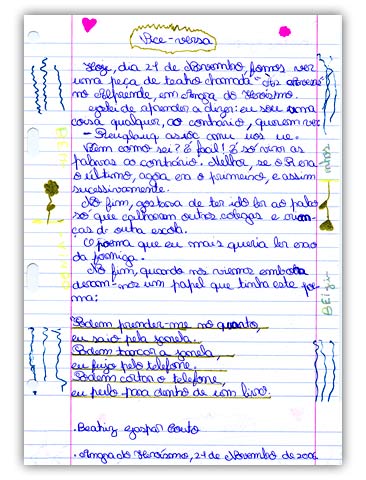 Vice-versa
Hoje, dia 24 de Novembro, fomos ver
uma peça de teatro chamada
no Alpendre, em Angra do Heroísmo.
Gostei de aprender a dizer: eu sou uma
coisa qualquer, ao contrário, querem ver
Bem como sei? É fácil! É só virar as
palavras ao contrário. Melhor, se o R era
o último, agora era o primeiro, e assim
sucessivamente.
No fim, gostava de ter ido ler ao palco
só que calharam outros colegas e crian-
ças de outra escola.
O poema que eu mais queria ler era o
da formiga.
No fim, quando nós viemos embora
deram-nos um papel que tinha este po-
ma:
Podem prender-me no quarto,
eu saio pela janela.
Podem trancar a janela,
eu fujo pelo telefone.
Podem cortar o telefone,
eu pulo para dentro de um livro.
.Beatriz Gaspar Couto
.Angra do Heroísmo, 24 de Novembro de 2006